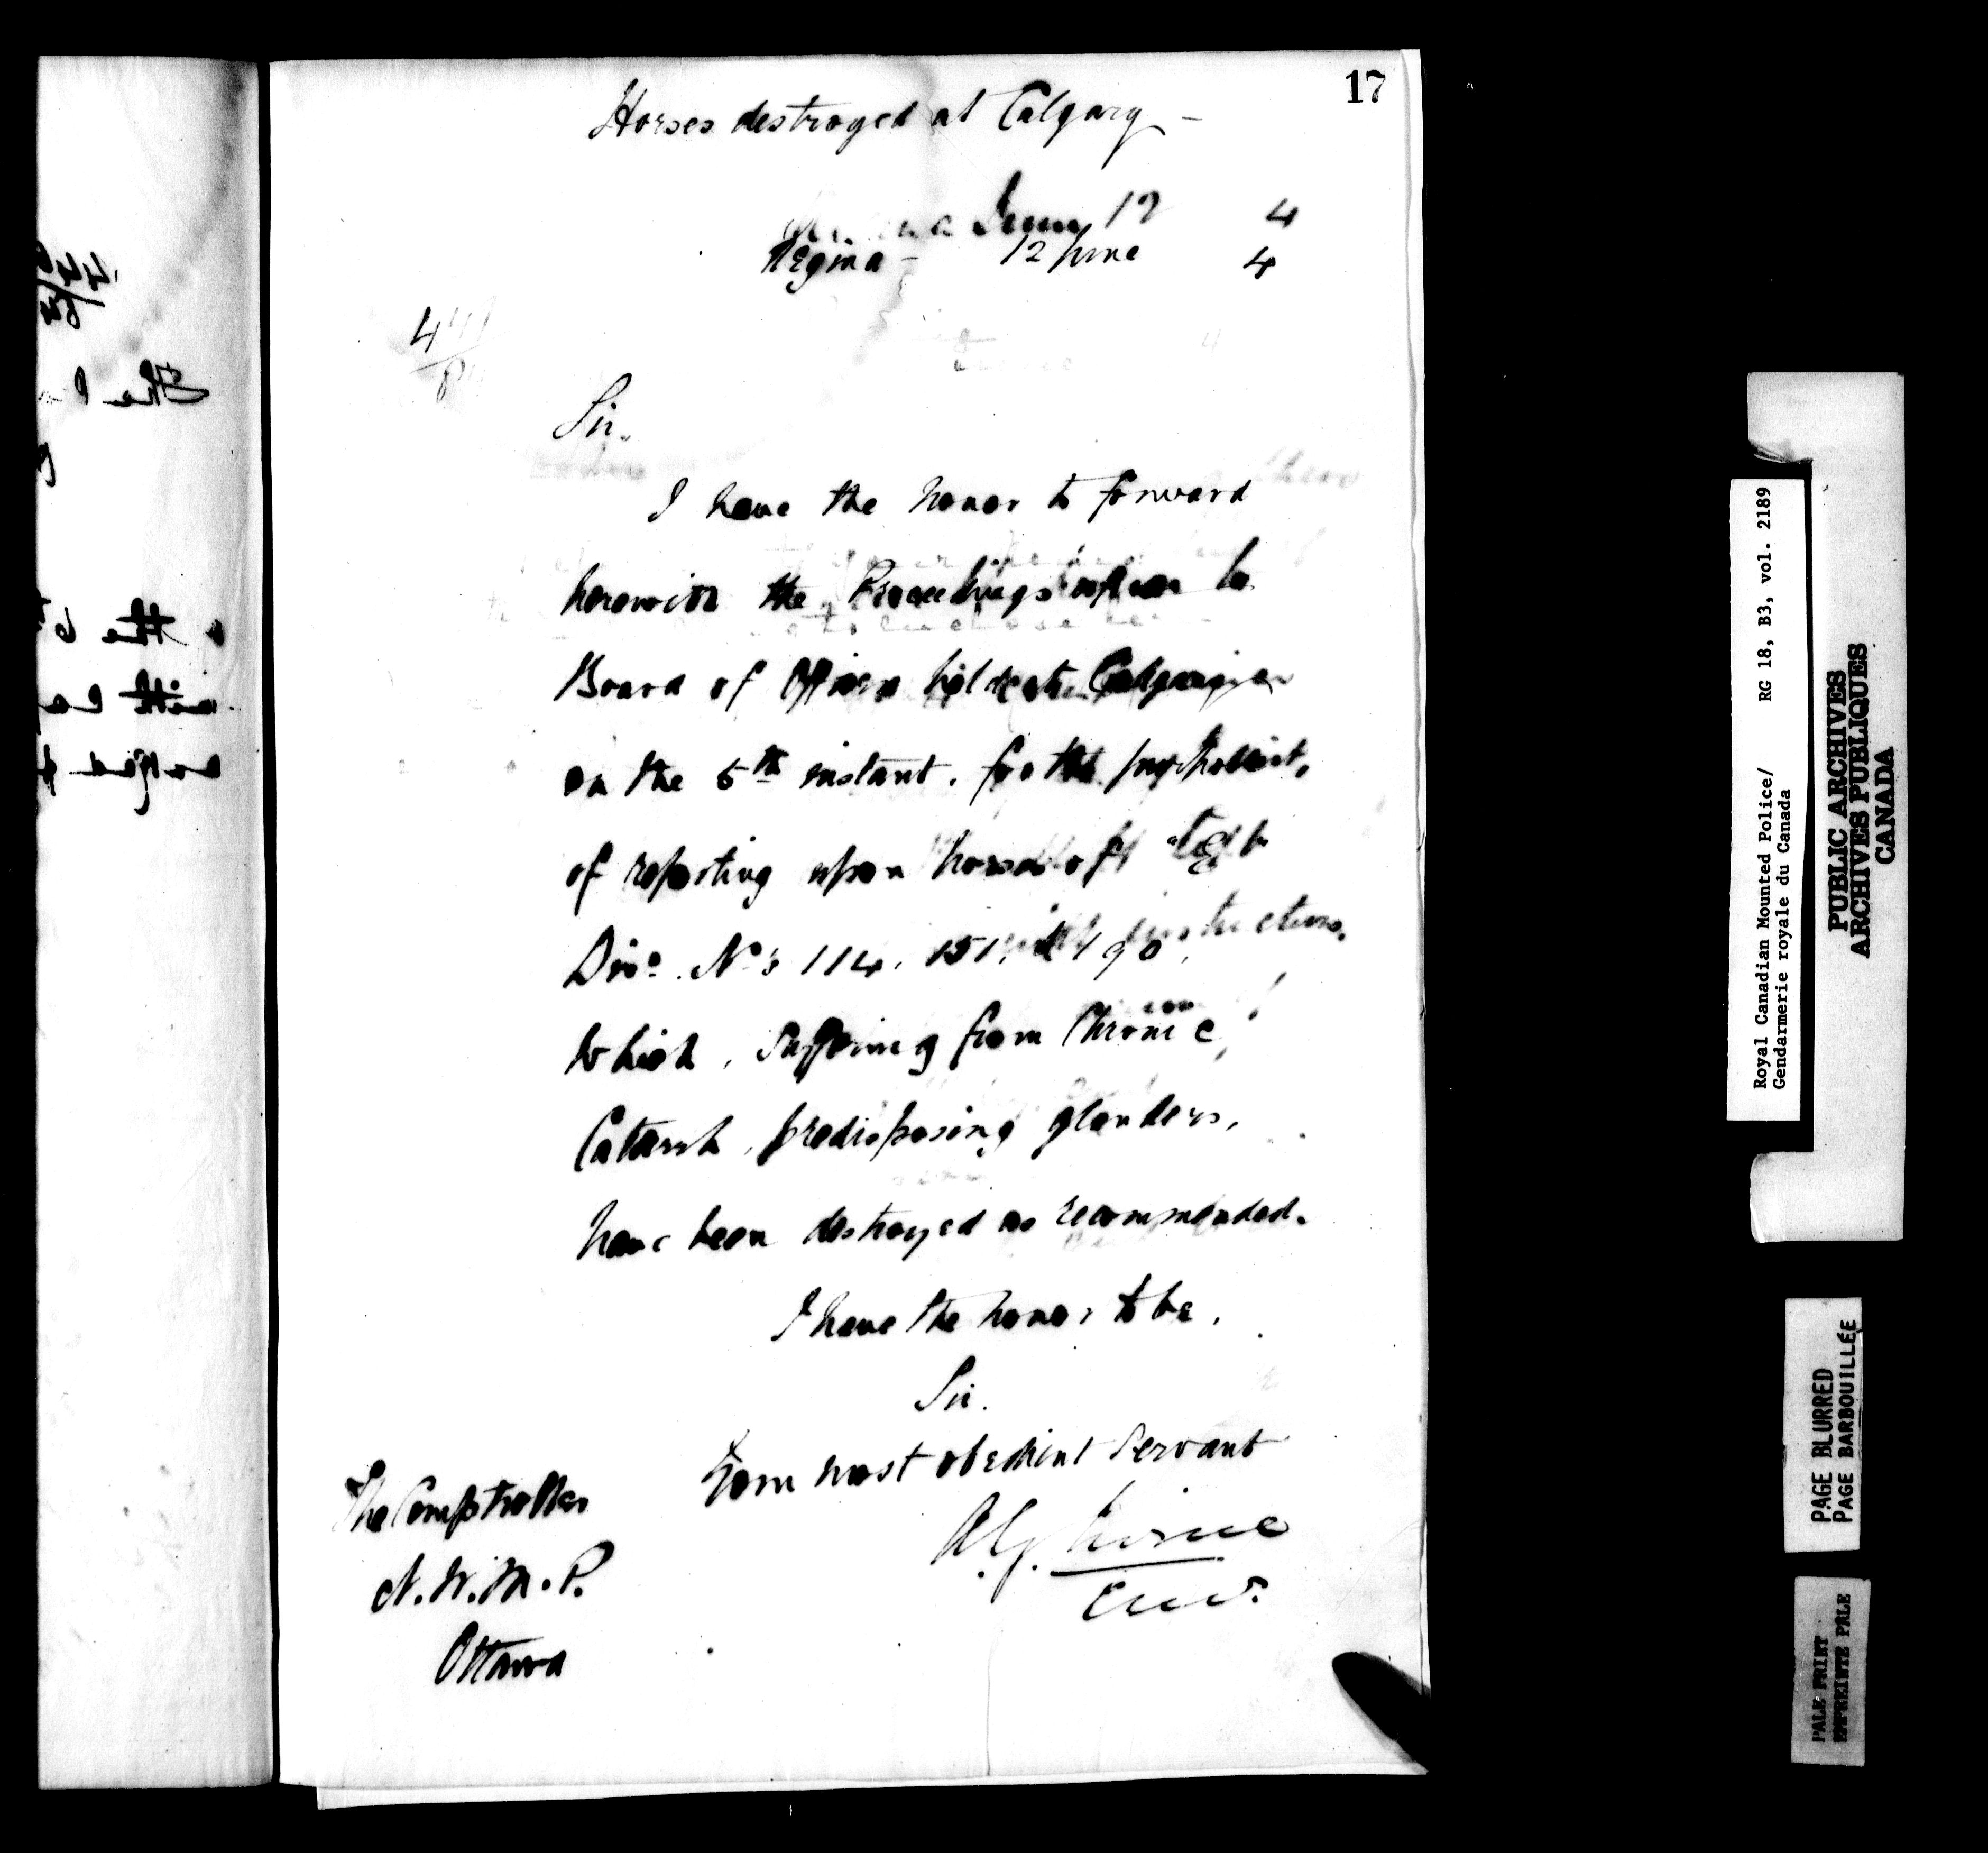 17
Horses destroyed at Calgary -
June 12 4
Regina - 12 June 4
44
8
Sir.
I have the honor to forward
herewith the Proceedings
Board of Officers held at Calgary
on the 5th instant. for the
of reporting upon horses of "E"
Divn. No's 114. 151, 190,
which, suffering from Chronic
Catarrh, predisposing glanders,
have been destroyed as recommended.
I have the honor to be,
Sir.
Your most obedient servant
A.G. Irvine
The Comptroller
N.W.M.P.
Ottawa
Royal Canadian Mounted Police/ RG 18, B3, vol. 2189
Gendarmerie royale du Canada
PUBLIC ARCHIVES
ARCHIVES PUBLIQUES
CANADA
PAGE BLURRED
PAGE BARBOUILLÉE
PALE PRINT
EMPREINTE PALE